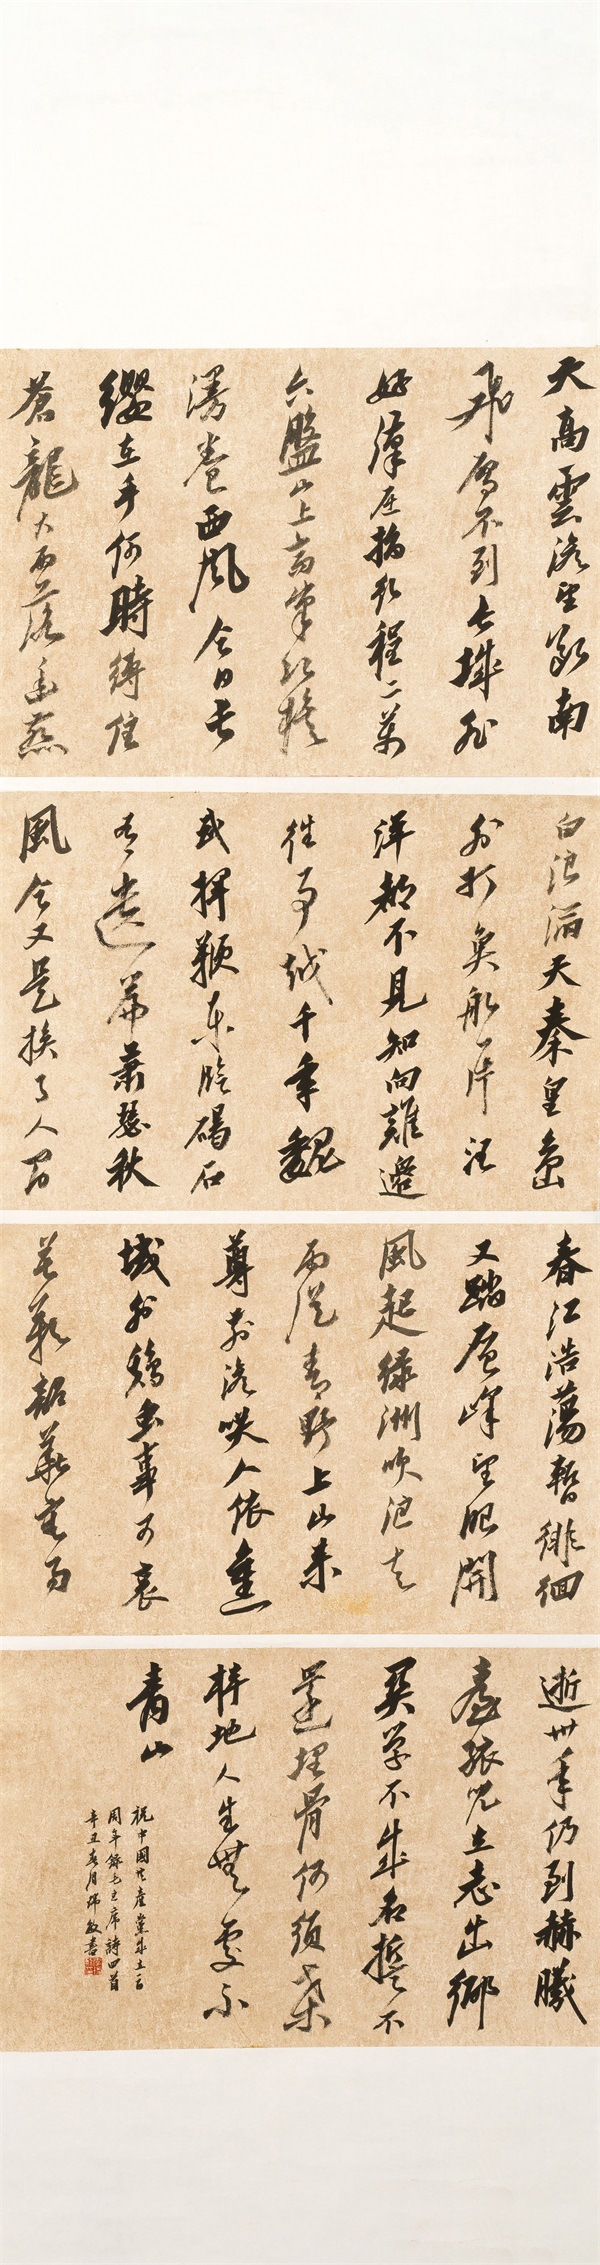 天高雲淡望斷南
飛鴈不到長城非
好漢屈指行程二萬
六盤山上高峯紅旗
漫卷西風今日長
纓在手何時縛住
蒼龍大雨落幽燕
白浪滔天秦皇島
外打魚船一片汪
洋都不見知向誰邊
往事越千年魏
武揮鞭東臨碣石
有遺篇蕭瑟秋
風今又是換了人間
春江浩蕩暫徘徊
又踏層峰望眼開
風起綠洲吹浪去
雨從青野上山來
尊前談笑人依舊
域外雞蟲事可哀
莫歎韶華容易
逝卅年仍到赫曦
臺孩兒立志出鄉
關學不成名誓不
還埋骨何須桑
梓地人生無處不
青山
祝中國共產黨成立百
周年錄毛主席詩四首
辛丑春月瑞敏書